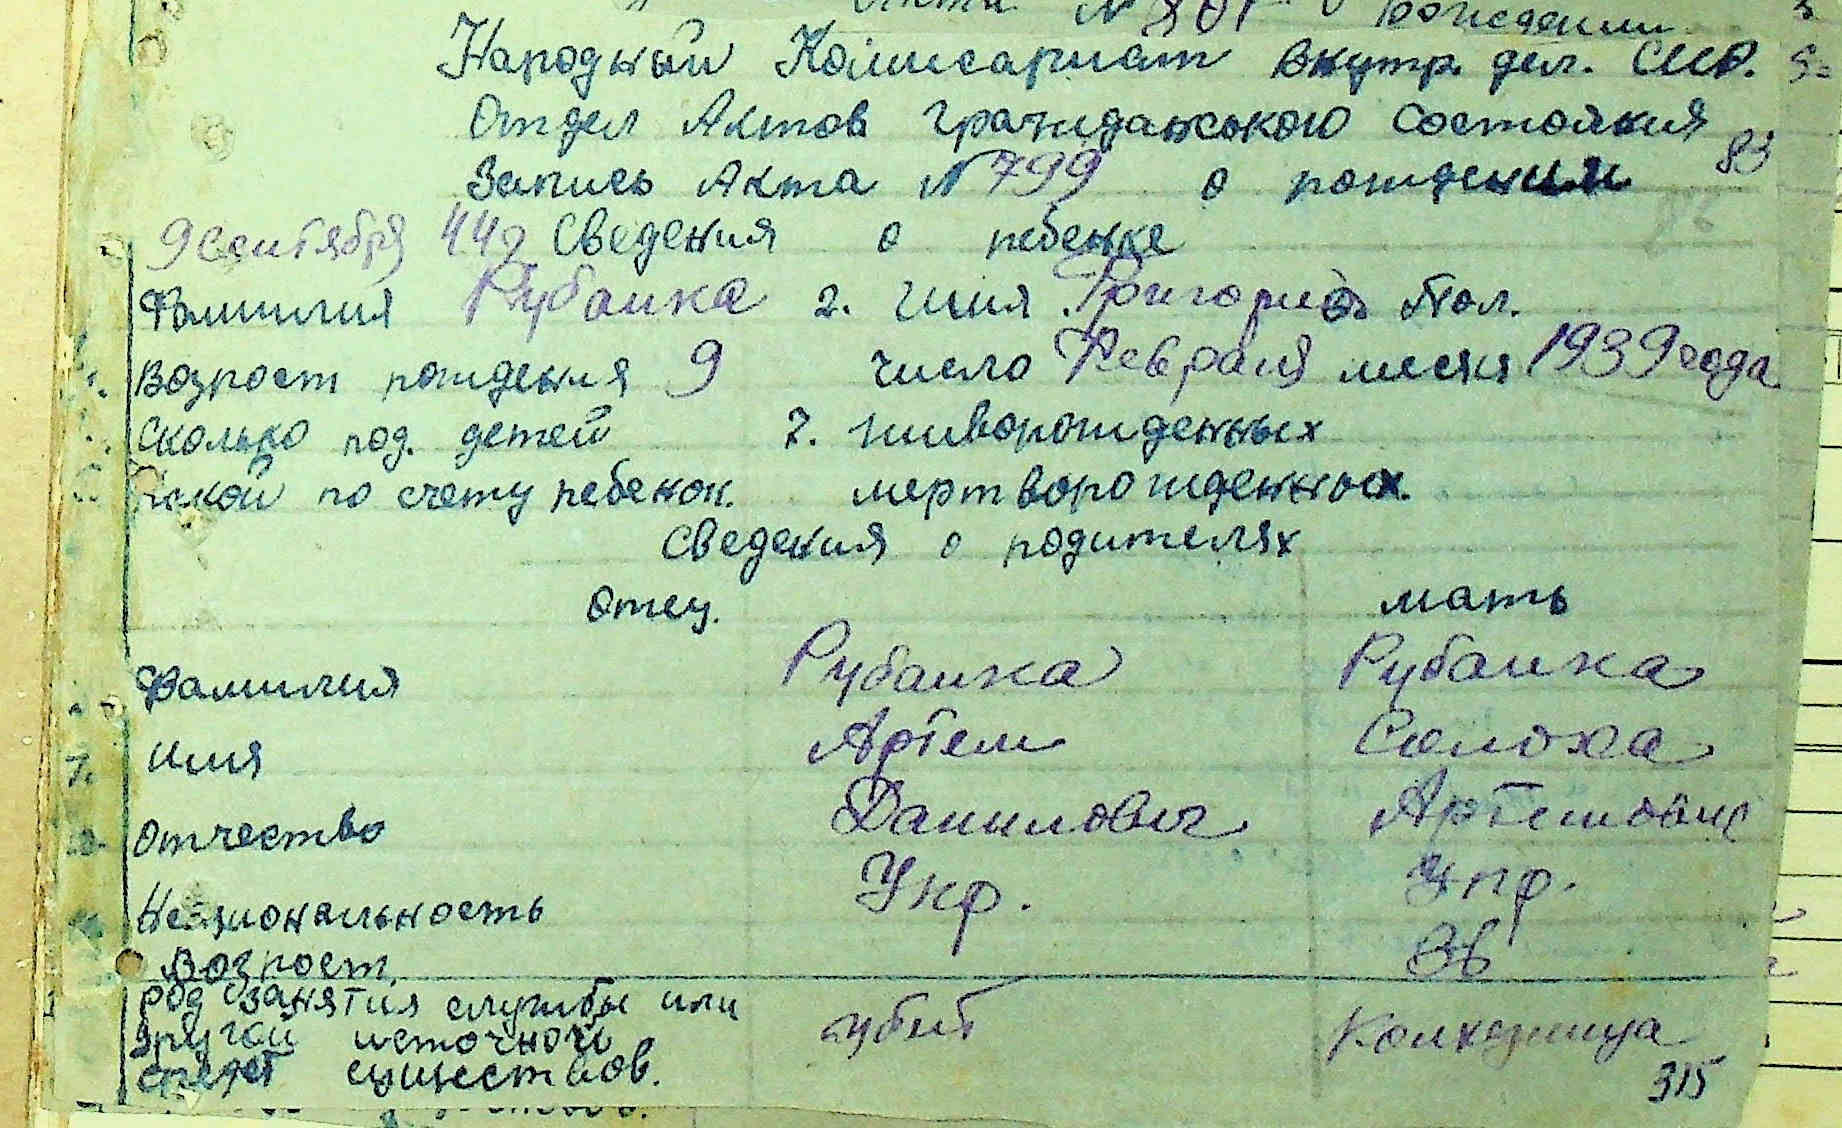 Акта № 801 о рождении
Народный Комисариат внутр. дел. СССР.
Отдел Актов гражданского состояния
Запись Акта № 799 о рождении 83
9 сентября 44 г Сведения о ребенке
Фамилия Рубанка 2. Имя Григорий Пол.
Возрост рождения 9 число Февраля месяя 1939 года
Сколько род. детей 7. живорожденных
какой по счету ребенок. мертворожденных.
Сведения о родителях
Отец. мать
Фамилия Рубанка Рубанка
Имя Артем Солоха
Отчество Данилович Артемовна
Национальность Укр. Укр.
Возрост 36
род занятия службы или
другой источной убит Колхозница
средст существов. 315